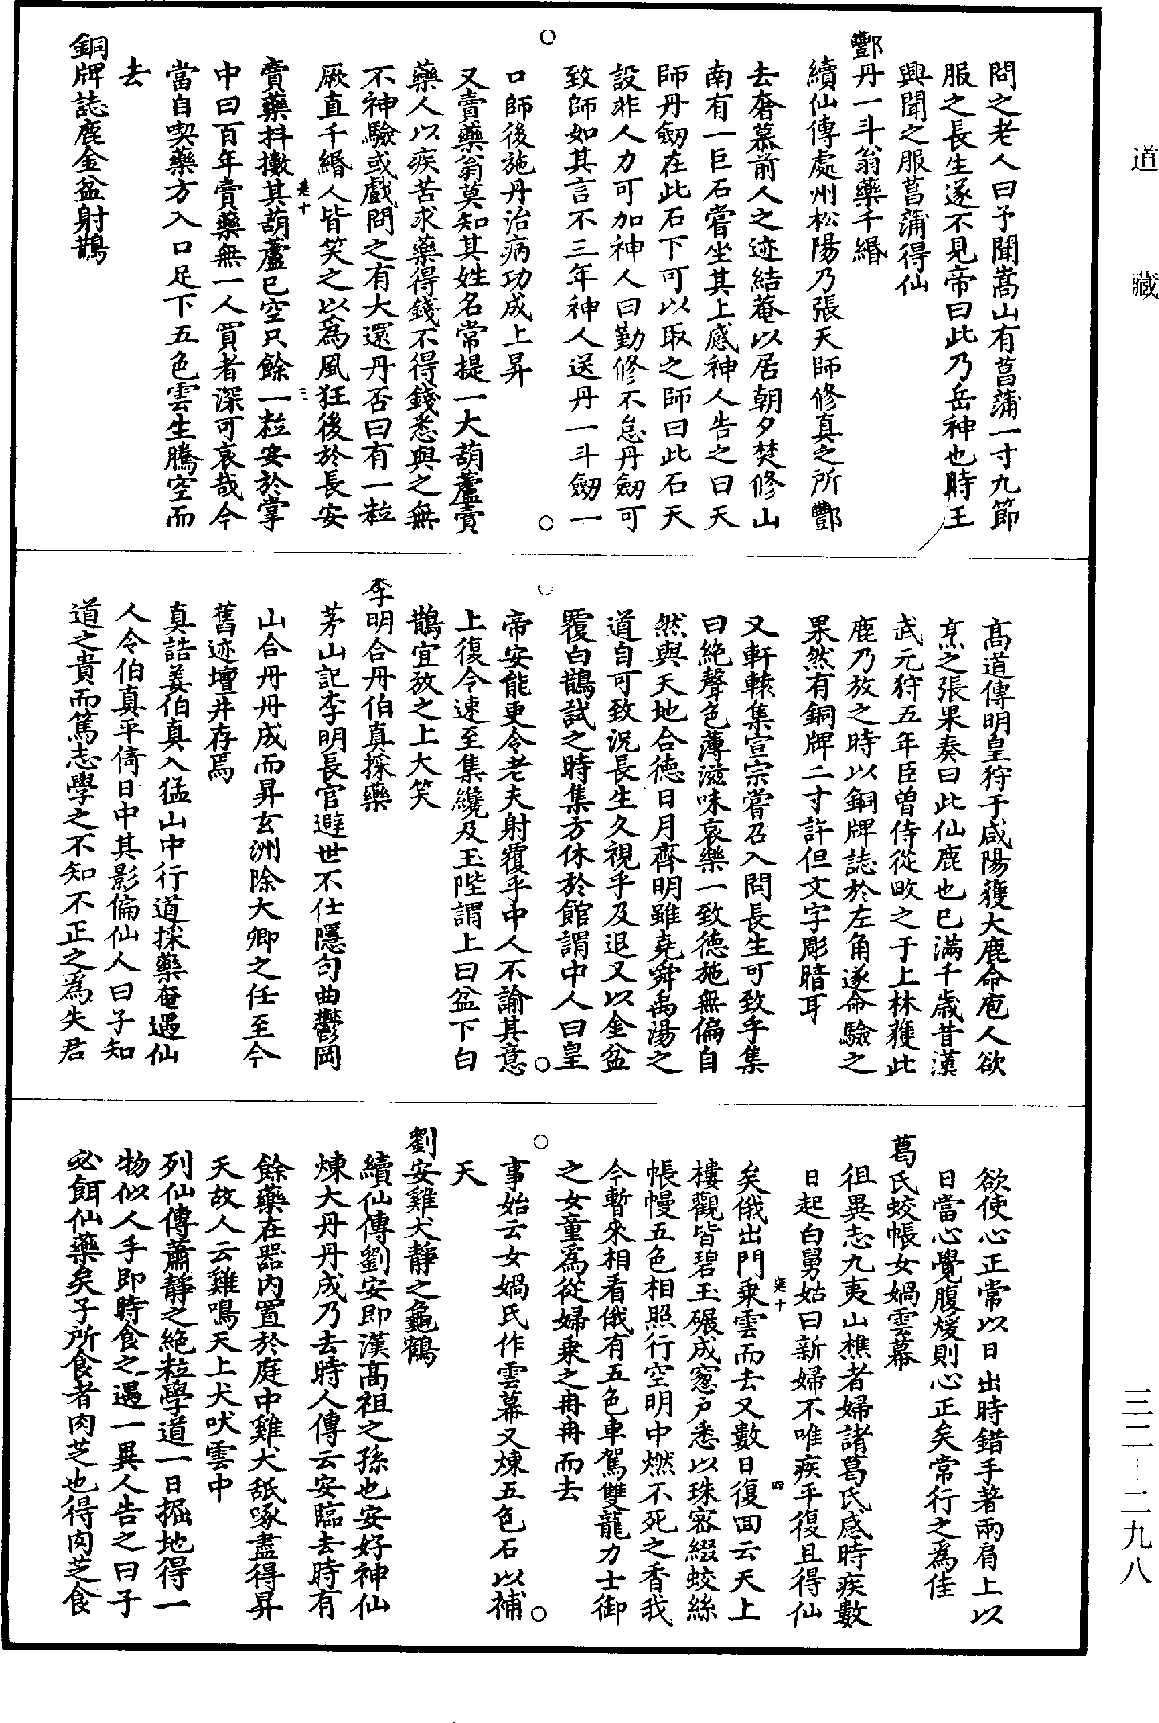 道藏
問之老人曰予聞嵩山有菖蒲一寸九節
服之長生遂不見帝曰此乃岳神也時王
興聞之服菖蒲得仙
酆丹一斗翁藥千緡
續仙傳處州松陽乃張天師修真之所酆
去奢慕前人之迹結菴以居朝夕焚修山
南有一巨石嘗坐其上感神人告之曰天
師丹劒在此石下可以取之師曰此石天
設非人力可加神人曰勤修不怠丹劒可
致師如其言不三年神人送丹一斗劒一
口師後施丹治病功成上昇
又賣藥翁莫知其姓名常提一大葫蘆賣
藥人以疾苦求藥得錢不得錢悉與之無
不神驗或戲問之有大還丹否曰有一粒
厥直千緡人皆笑之以為風狂後於長安
賣藥抖擻其葫蘆已空只餘一粒安於掌
中曰百年賣藥無一人買者深可哀哉今
當自喫藥方入口足下五色雲生騰空而
去
銅牌誌鹿金盆射鵲
高道傳明皇狩于咸陽獲大鹿命庖人欲
烹之張果奏曰此仙鹿也已滿千歲昔漢
武元狩五年臣曾侍從畋之于上林獲此
鹿乃放之時以銅牌誌於左角遂命驗之
果然有銅牌二寸許但文字彫暗耳
又軒轅集宣宗嘗召入問長生可致乎集
曰絕聲色薄滋味哀樂一致德施無偏自
然與天地合德日月齊明雖堯舜禹湯之
道自可致況長生久視乎及退又以金盆
覆白鵲試之時集方休於館謂中人曰皇
帝安能更令老夫射覆乎中人不諭其意
上復令速至集纔及玉陛謂上曰盆下白
鵲宜放之上大笑
李明合丹伯真採藥
茅山記李明長官避世不仕隱句曲鬱岡
山合丹丹成而昇玄洲除大卿之任至今
舊迹壇井存焉
真誥姜伯真入猛山中行道採藥奄遇仙
人令伯真平倚日中其影偏仙人曰子知
道之貴而篤志學之不知不正之為失君
欲使心正常以日出時錯手著兩肩上以
日當心覺腹煖則心正矣常行之為佳
葛氏蛟帳女媧雲幕
徂異志九夷山樵者婦諸葛氏感時疾數
日起白舅姑曰新婦不唯疾平復且得仙
矣俄出門乘雲而去又數日復回云天上
樓觀皆碧玉碾成窻戶悉以珠密綴蛟絲
帳幔五色相照行空明中燃不死之香我
今暫來相看俄有五色車駕雙龍力士御
之女童為從婦乘之冉冉而去
事始云女媧氏作雲幕又煉五色石以補
天
劉安雞犬靜之龜鶴
續仙傳劉安即漢高祖之孫也安好神仙
煉大丹丹成乃去時人傳云安臨去時有
餘藥在器內置於庭中雞犬舐啄盡得昇
天故人云雞鳴天上犬吠雲中
列仙傳蕭靜之絕粒學道一日掘地得一
物似人手即時食之遇一異人告之曰子
必餌仙藥矣子所食者肉芝也得肉芝食
三二-二九八